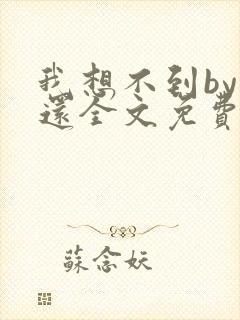 我想不到by
還全文免費
蘇念妖